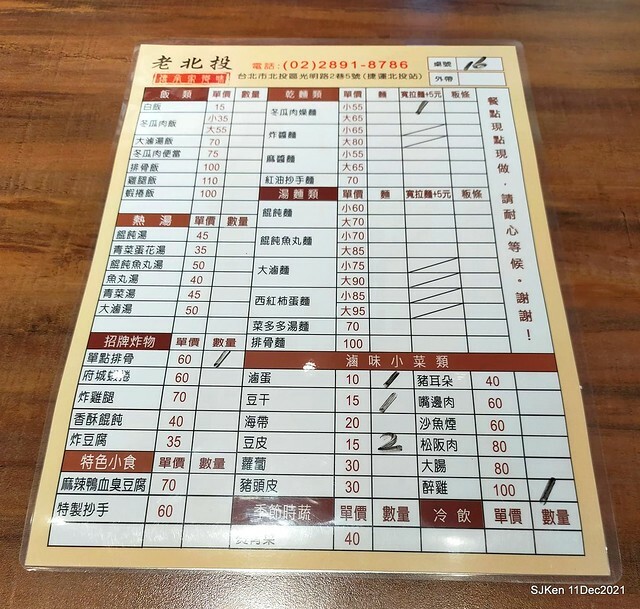 老北投
電話:(02)2891-8786
台北市北投區光明路2巷5號(捷運北投站)
桌號 16
外帶
飯類 單價 數量
白飯 15
冬瓜肉飯 小35
大55
大滷湯飯 70
冬瓜肉便當 75
排骨飯 100
雞腿飯 110
蝦捲飯 100
熱湯 單價 數量
餛飩湯 45
青菜蛋花湯 35
餛飩魚丸湯 50
魚丸湯 40
青菜湯 45
大滷湯 50
招牌炸物 單價 數量
單點排骨 60
府城蝦捲 60
炸雞腿 70
香酥餛飩 40
炸豆腐 35
特色小食 單價 數量
麻辣鴨血臭豆腐 70
特製抄手 60
乾麵類 單價 麵 寬拉麵+5元 板條
冬瓜肉燥麵 小55
大65
炸醬麵 小65
大80
麻醬麵 小55
大65
紅油抄手麵 70
湯麵類 單價 麵 寬拉麵+5元 板條
餛飩麵 小60
大70
餛飩魚丸麵 小70
大85
大滷麵 小75
大90
西紅柿蛋麵 小85
大95
菜多多湯麵 70
排骨麵 100
滷味小菜類
滷蛋 10
豆干 15
海帶 20
豆皮 15 2
蘿蔔 30
豬頭皮 30
豬耳朵 40
嘴邊肉 60
沙魚煙 60
松阪肉 80
大腸 80
醉雞 100
季節時蔬 單價 數量
40
冷飲 單價 數量
餐點現點現做,請耐心等候,謝謝!
SJKen 11Dec2021